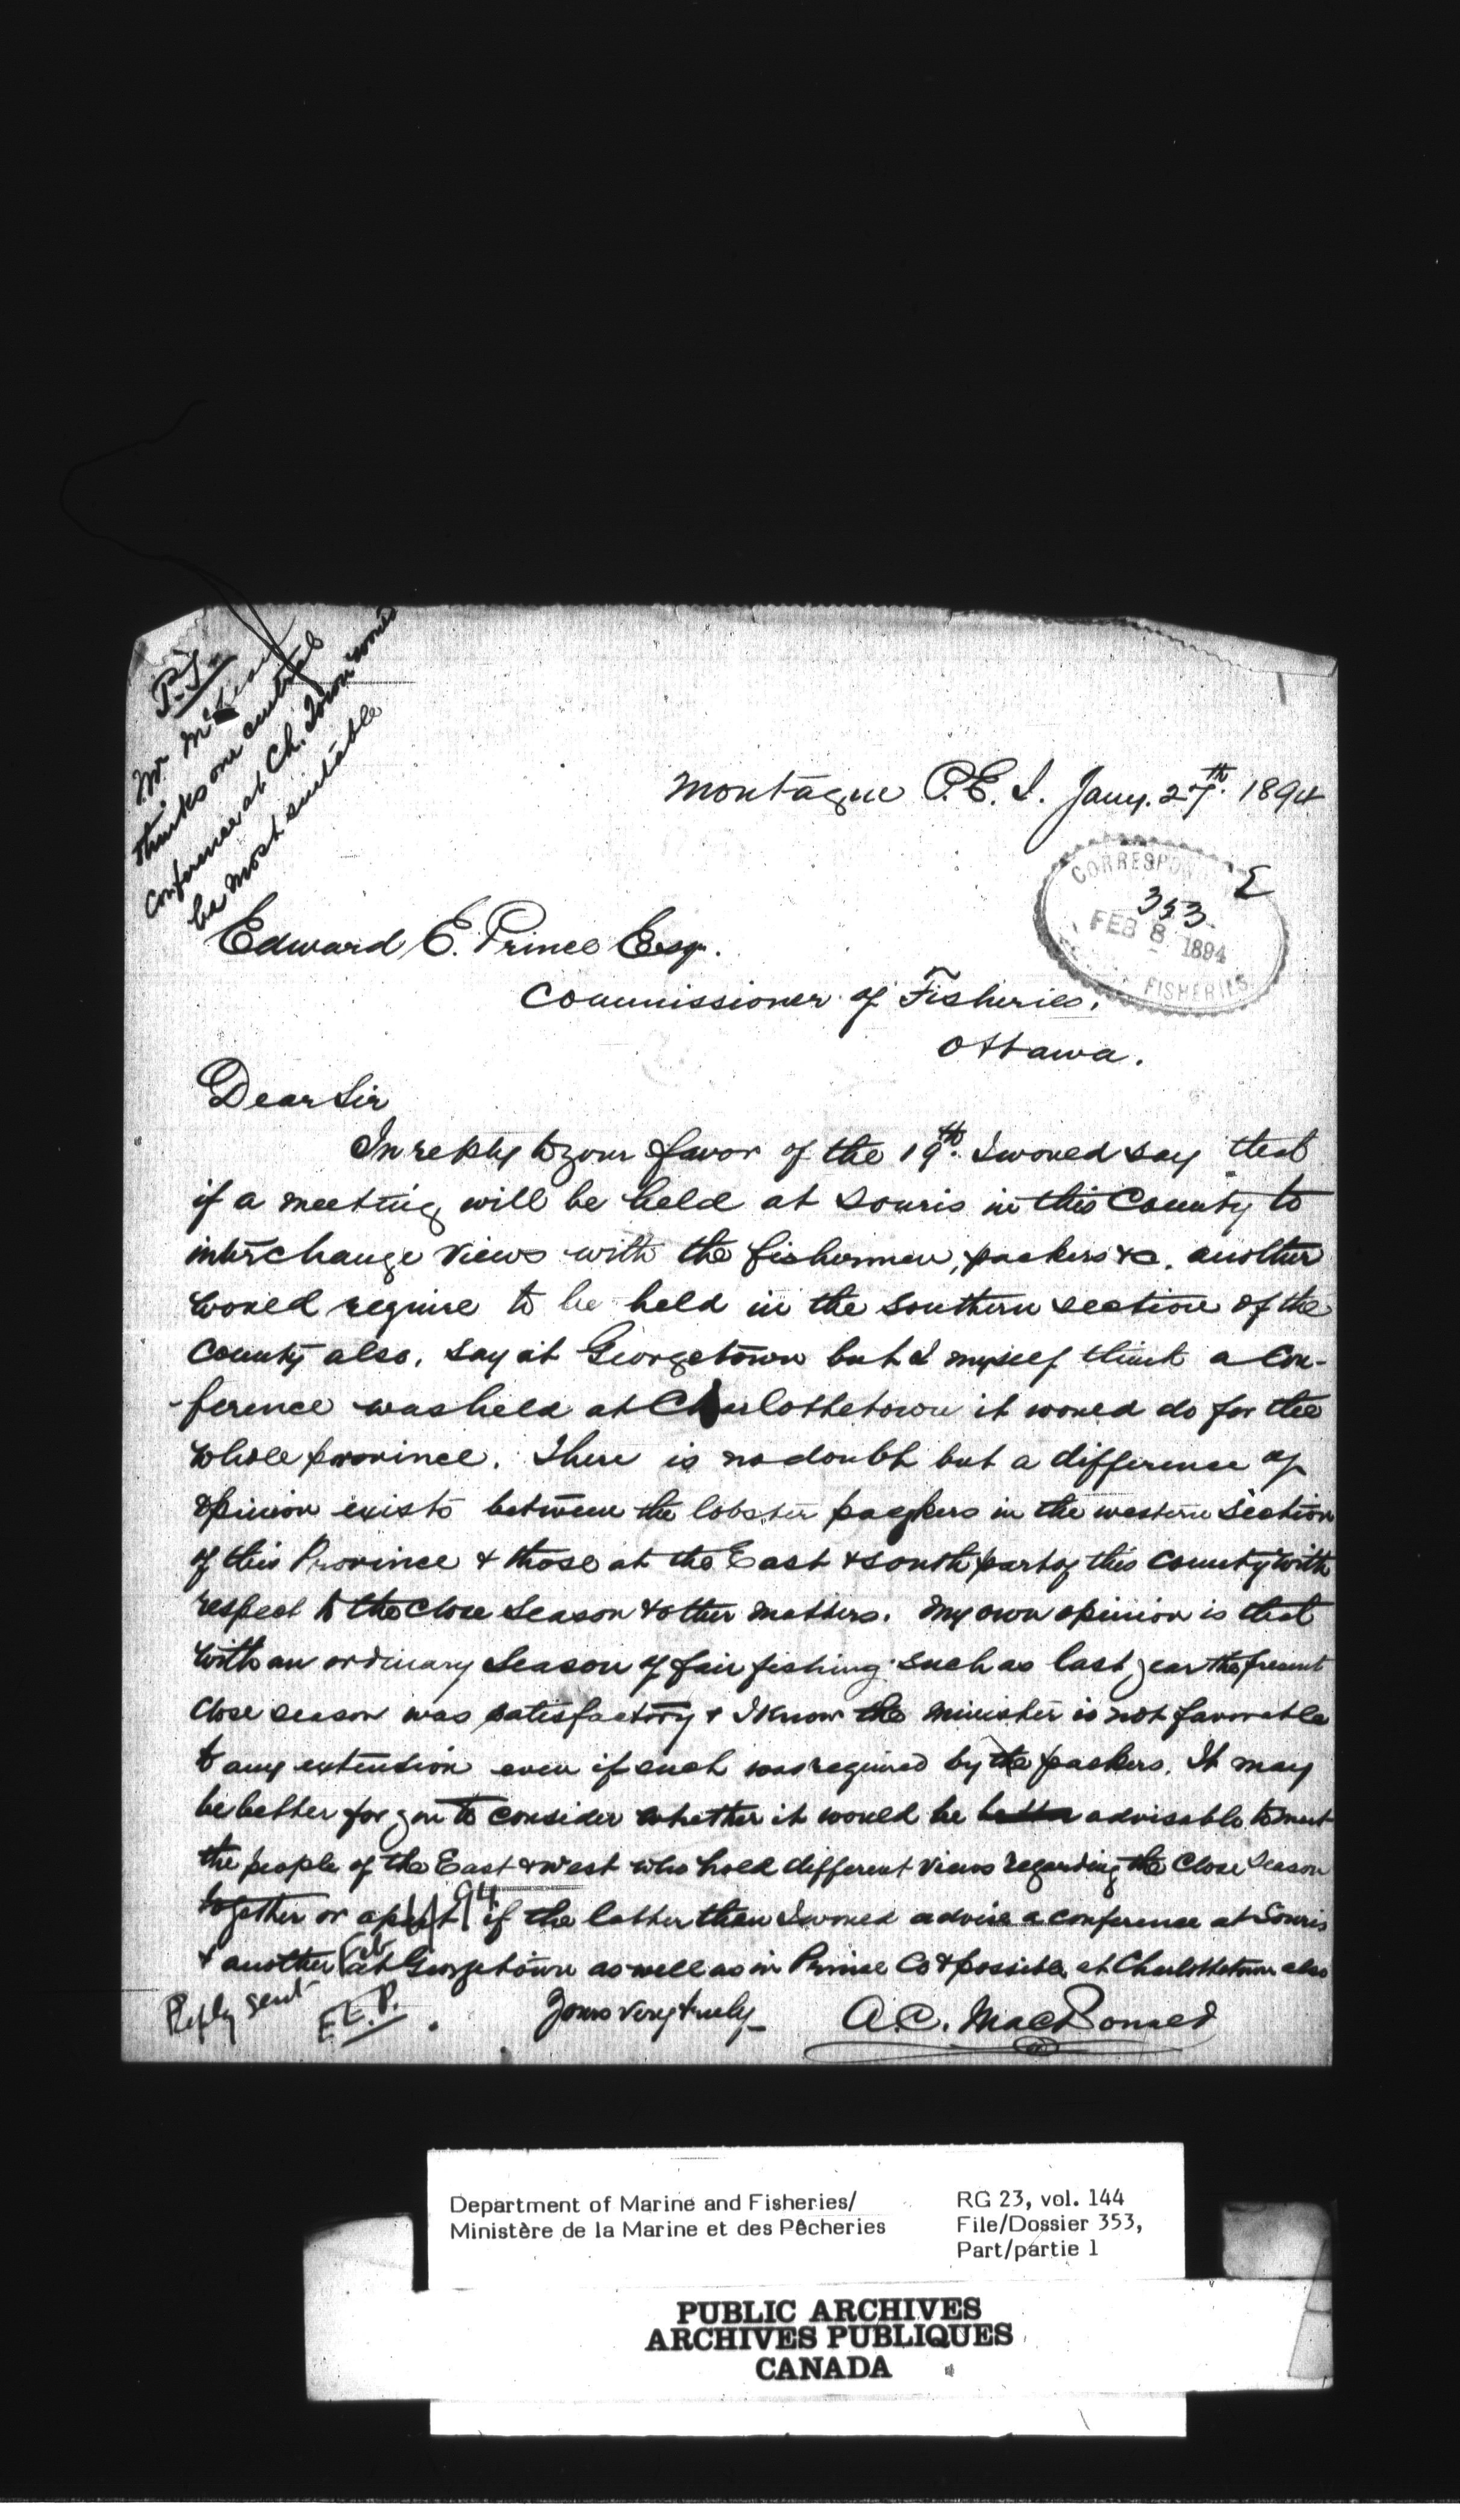 P.I.
Mr. McLean
thinks one central
conference at Ch. Town would
be most suitable
Montague P.E.I. Jany. 27th. 1894
CORRESPON
353
FEB 8 1894
FISHERIES
Edward E. Prince Esqr.
Commissioner of Fisheries,
Ottawa.
Dear Sir
In reply to your favor of the 19th. I would say that
if a meeting will be held at Souris in this County to
interchange views with the fishermen, packers &c. another
would require to be held in the southern section of the
County also, say at Georgetown but I myself think a Con-
-ference was held at Charlottetown it would do for the
whole province. There is no doubt but a difference of
opinion exists between the lobster packers in the western section
of this Province & those at the East & south part of this County with
respect to the Close Season & other matters. My own opinion is that
with an ordinary Season of fair fishing such as last year the present
Close season was satisfactory & I know the Minister is not favorable
to any extension even if such was required by the packers. It may
be better for you to consider whether it would be better advisable to meet
the people of the East & West who hold different views regarding the Close Season
together or apart if the latter then I would advise a conference at Souris
& another at Georgetown as well as in Prince Co & possibly at Charlottetown also
Reply sent
Feb
94
E.E.P.
Yours very truly
A.C. MacDonald
Department of Marine and Fisheries/
Ministère de la Marine et des Pêcheries
RG 23, vol. 144
File/Dossier 353,
Part/partie 1
PUBLIC ARCHIVES
ARCHIVES PUBLIQUES
CANADA